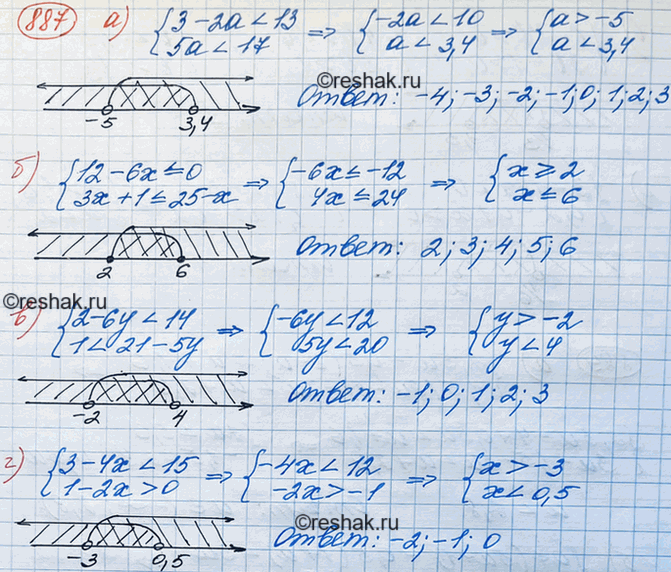 887 а) {3-2a<13 ⇒ {-2a<10 ⇒ {a>-5
{5a<17 {a<3,4 {a<3,4
©reshak.ru
-5 3,4 Ответ: -4; -3; -2; -1; 0; 1; 2; 3
б) {12-6x≤0 ⇒ {-6x≤-12 ⇒ {x≥2
{3x+1≤25-x {4x≤24 {x≤6
2 6 Ответ: 2; 3; 4; 5; 6
©reshak.ru
в) {2-6y<14 ⇒ {-6y<12 ⇒ {y>-2
{1<21-5y {5y<20 {y<4
-2 4 Ответ: -1; 0; 1; 2; 3
г) {3-4x<15 ⇒ {-4x<12 ⇒ {x>-3
{1-2x>0 {-2x>-1 {x<0,5
©reshak.ru
-3 0,5 Ответ: -2; -1; 0